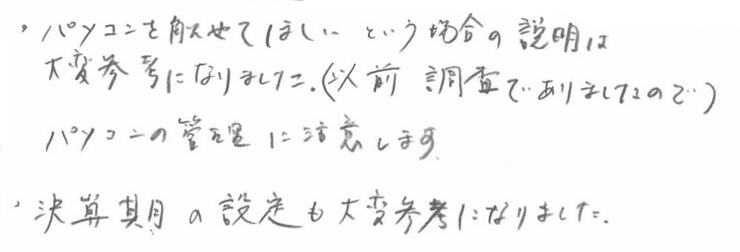 ・パソコンを触らせてほしい という場合の説明は
大変参考になりました。(以前 調査でありましたので)
パソコンの管理に注意します
・決算期の設定も大変参考になりました。